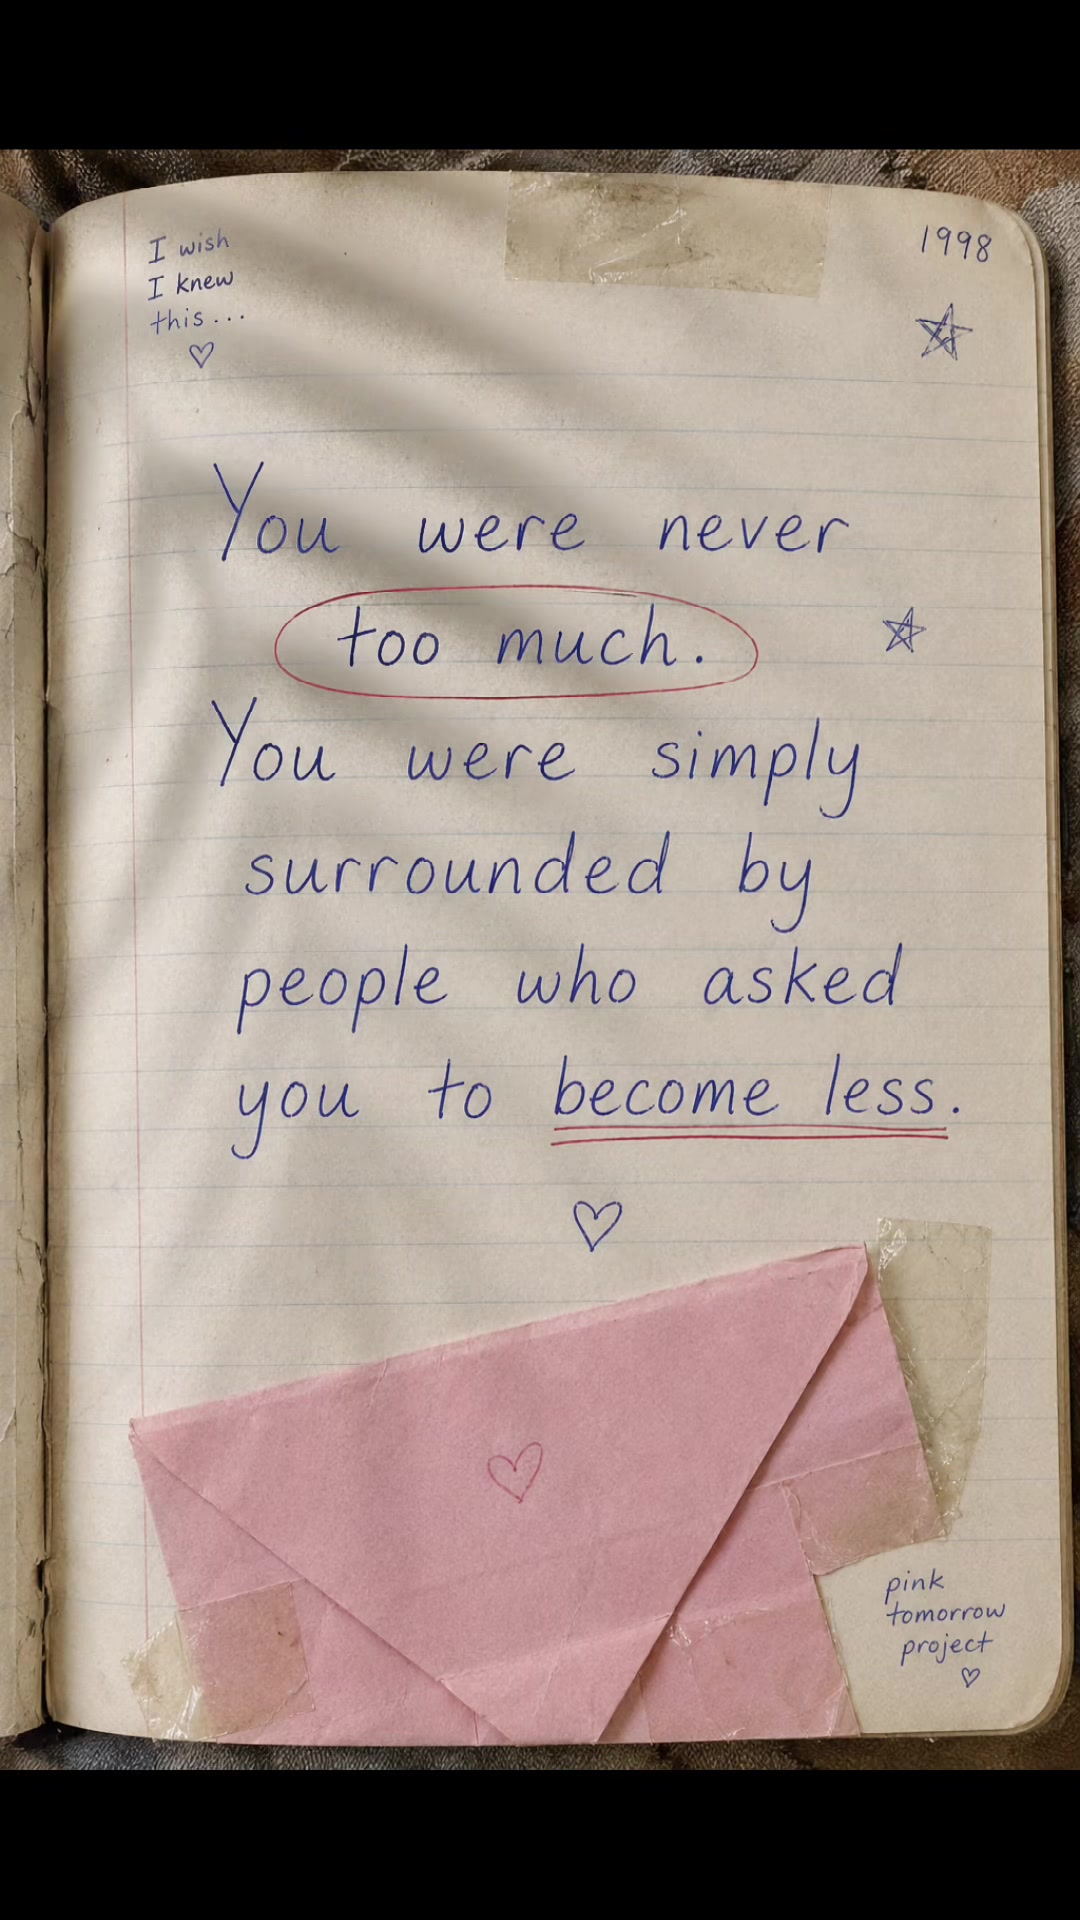 I wish
I knew
this...
1998
You were never
too much.
You were simply
surrounded by
people who asked
you to become less.
pink
tomorrow
project